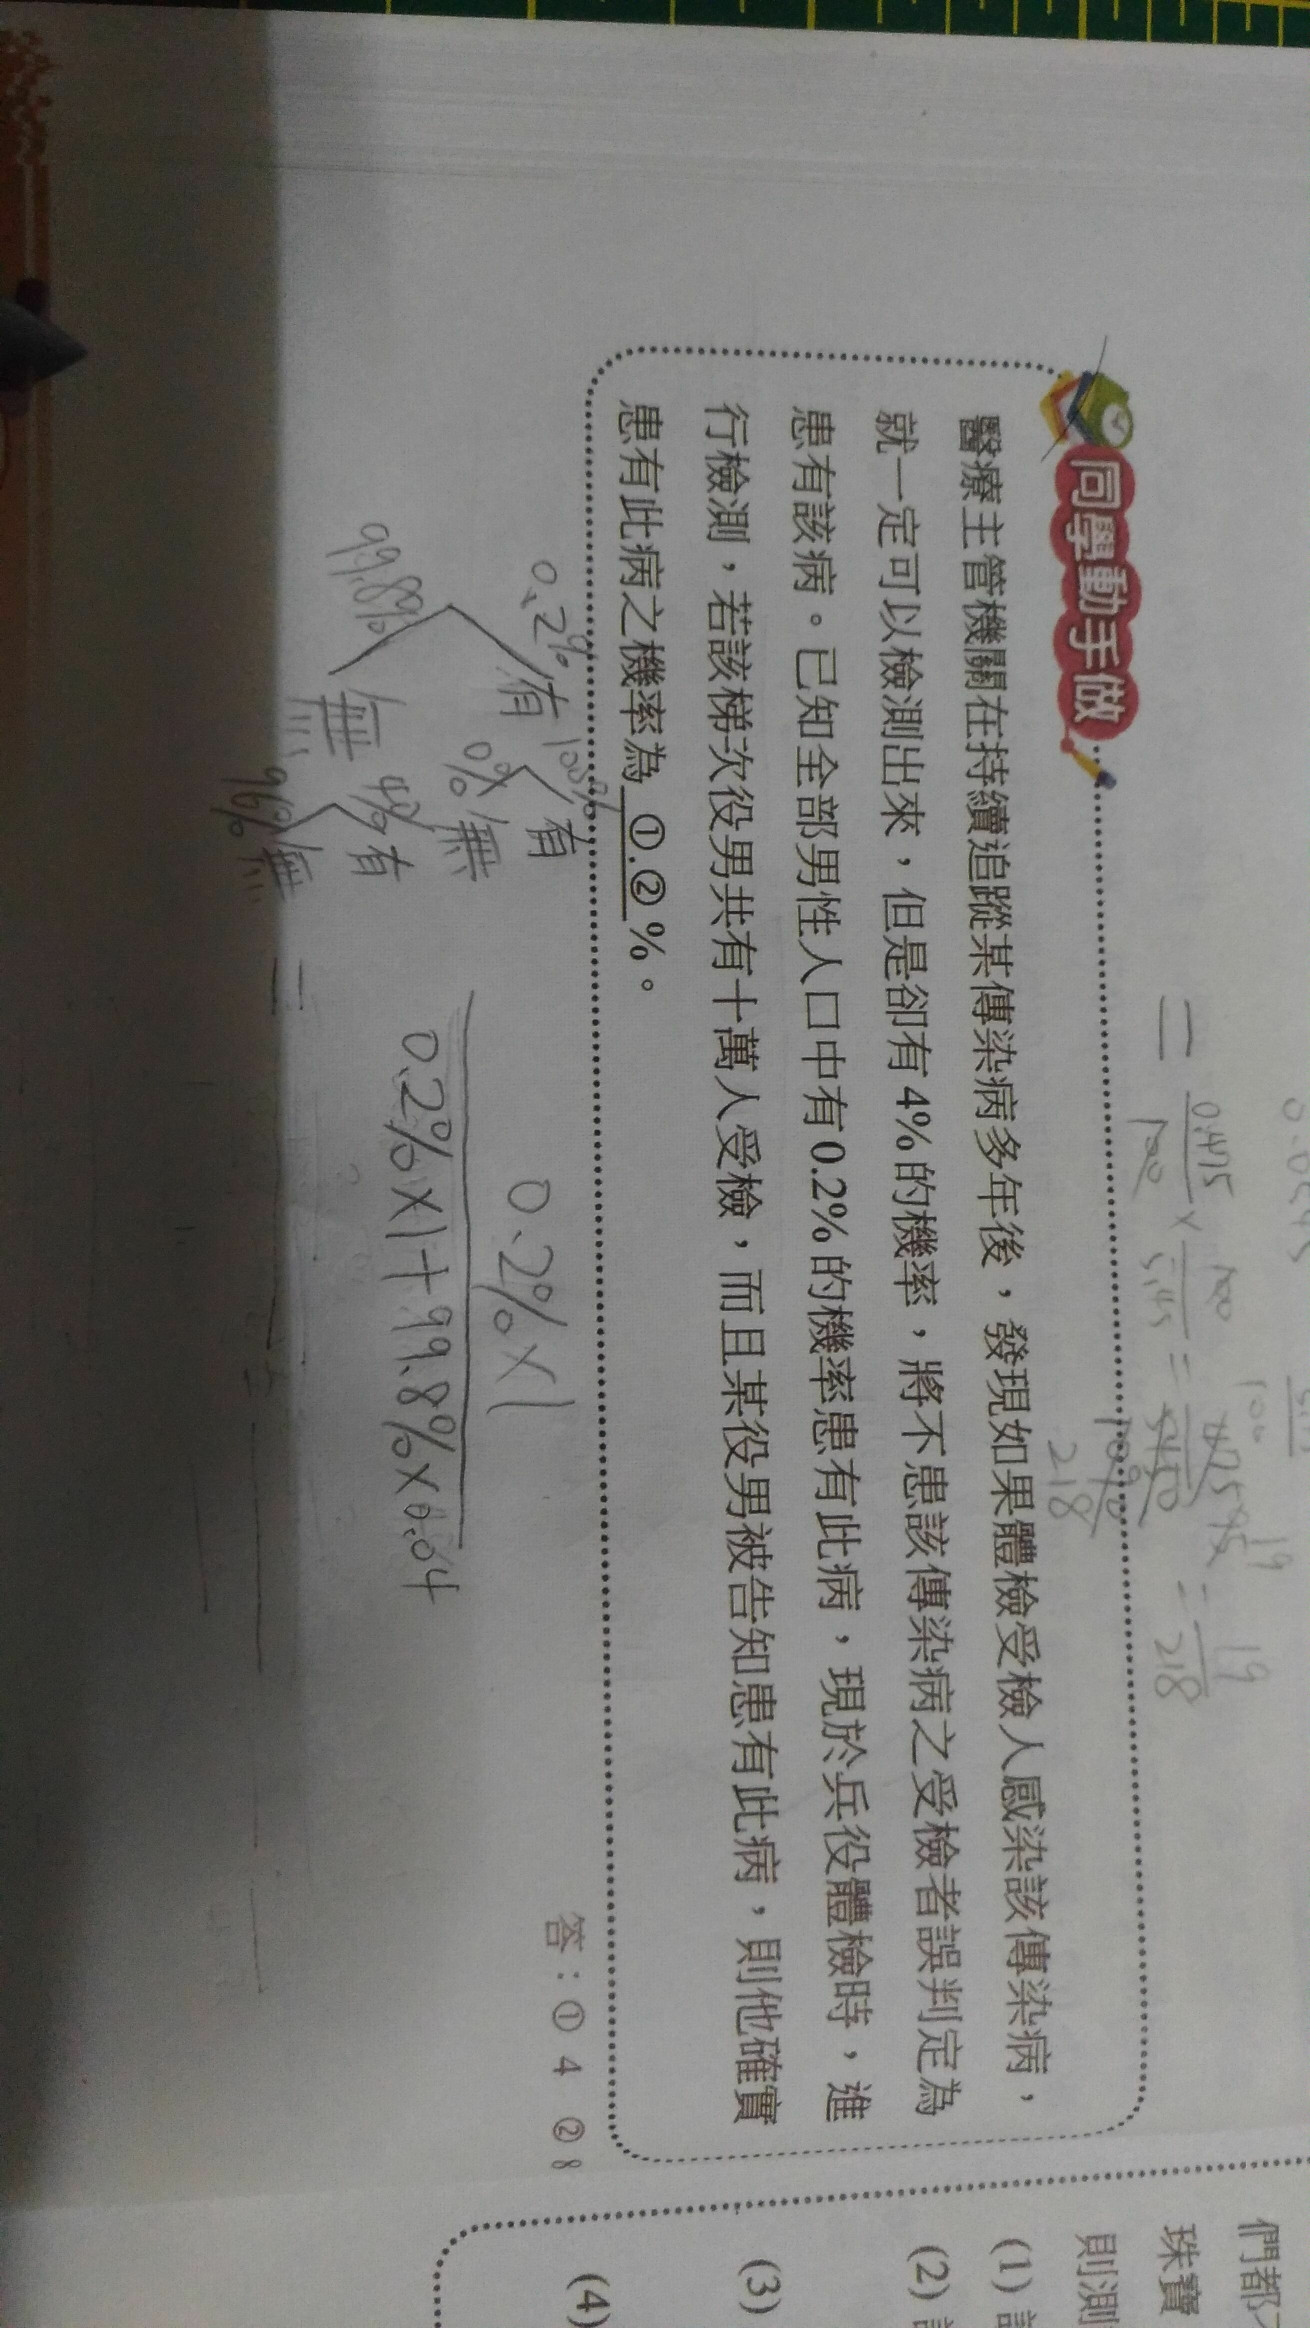 = 0.475/100 × 100/5.45 = 475/5450 = 19/218
218
同學動手做
醫療主管機關在持續追蹤某傳染病多年後，發現如果體檢受檢人感染該傳染病，
就一定可以檢測出來，但是卻有4%的機率，將不患該傳染病之受檢者誤判定為
患有該病。已知全部男性人口中有0.2%的機率患有此病，現於兵役體檢時，進
行檢測，若該梯次役男共有十萬人受檢，而且某役男被告知患有此病，則他確實
患有此病之機率為 ①.② %。
答：① 4 ② 8
0.2% 有 100% 有
0% 無
99.8% 無 4% 有
96% 無
0.2%×1
0.2%×1+99.8%×0.04
=
們都
珠寶
則測
(1)
(2)
(3)
(4)